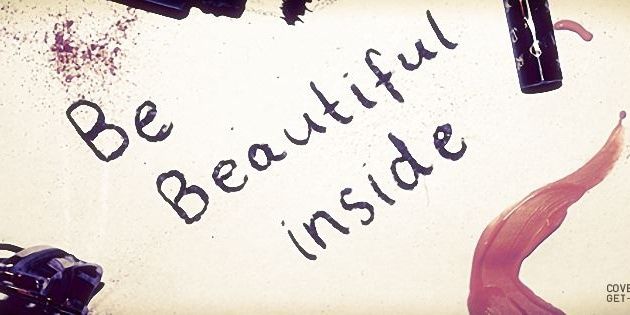 Be
Beautiful
inside
COVE
GET-